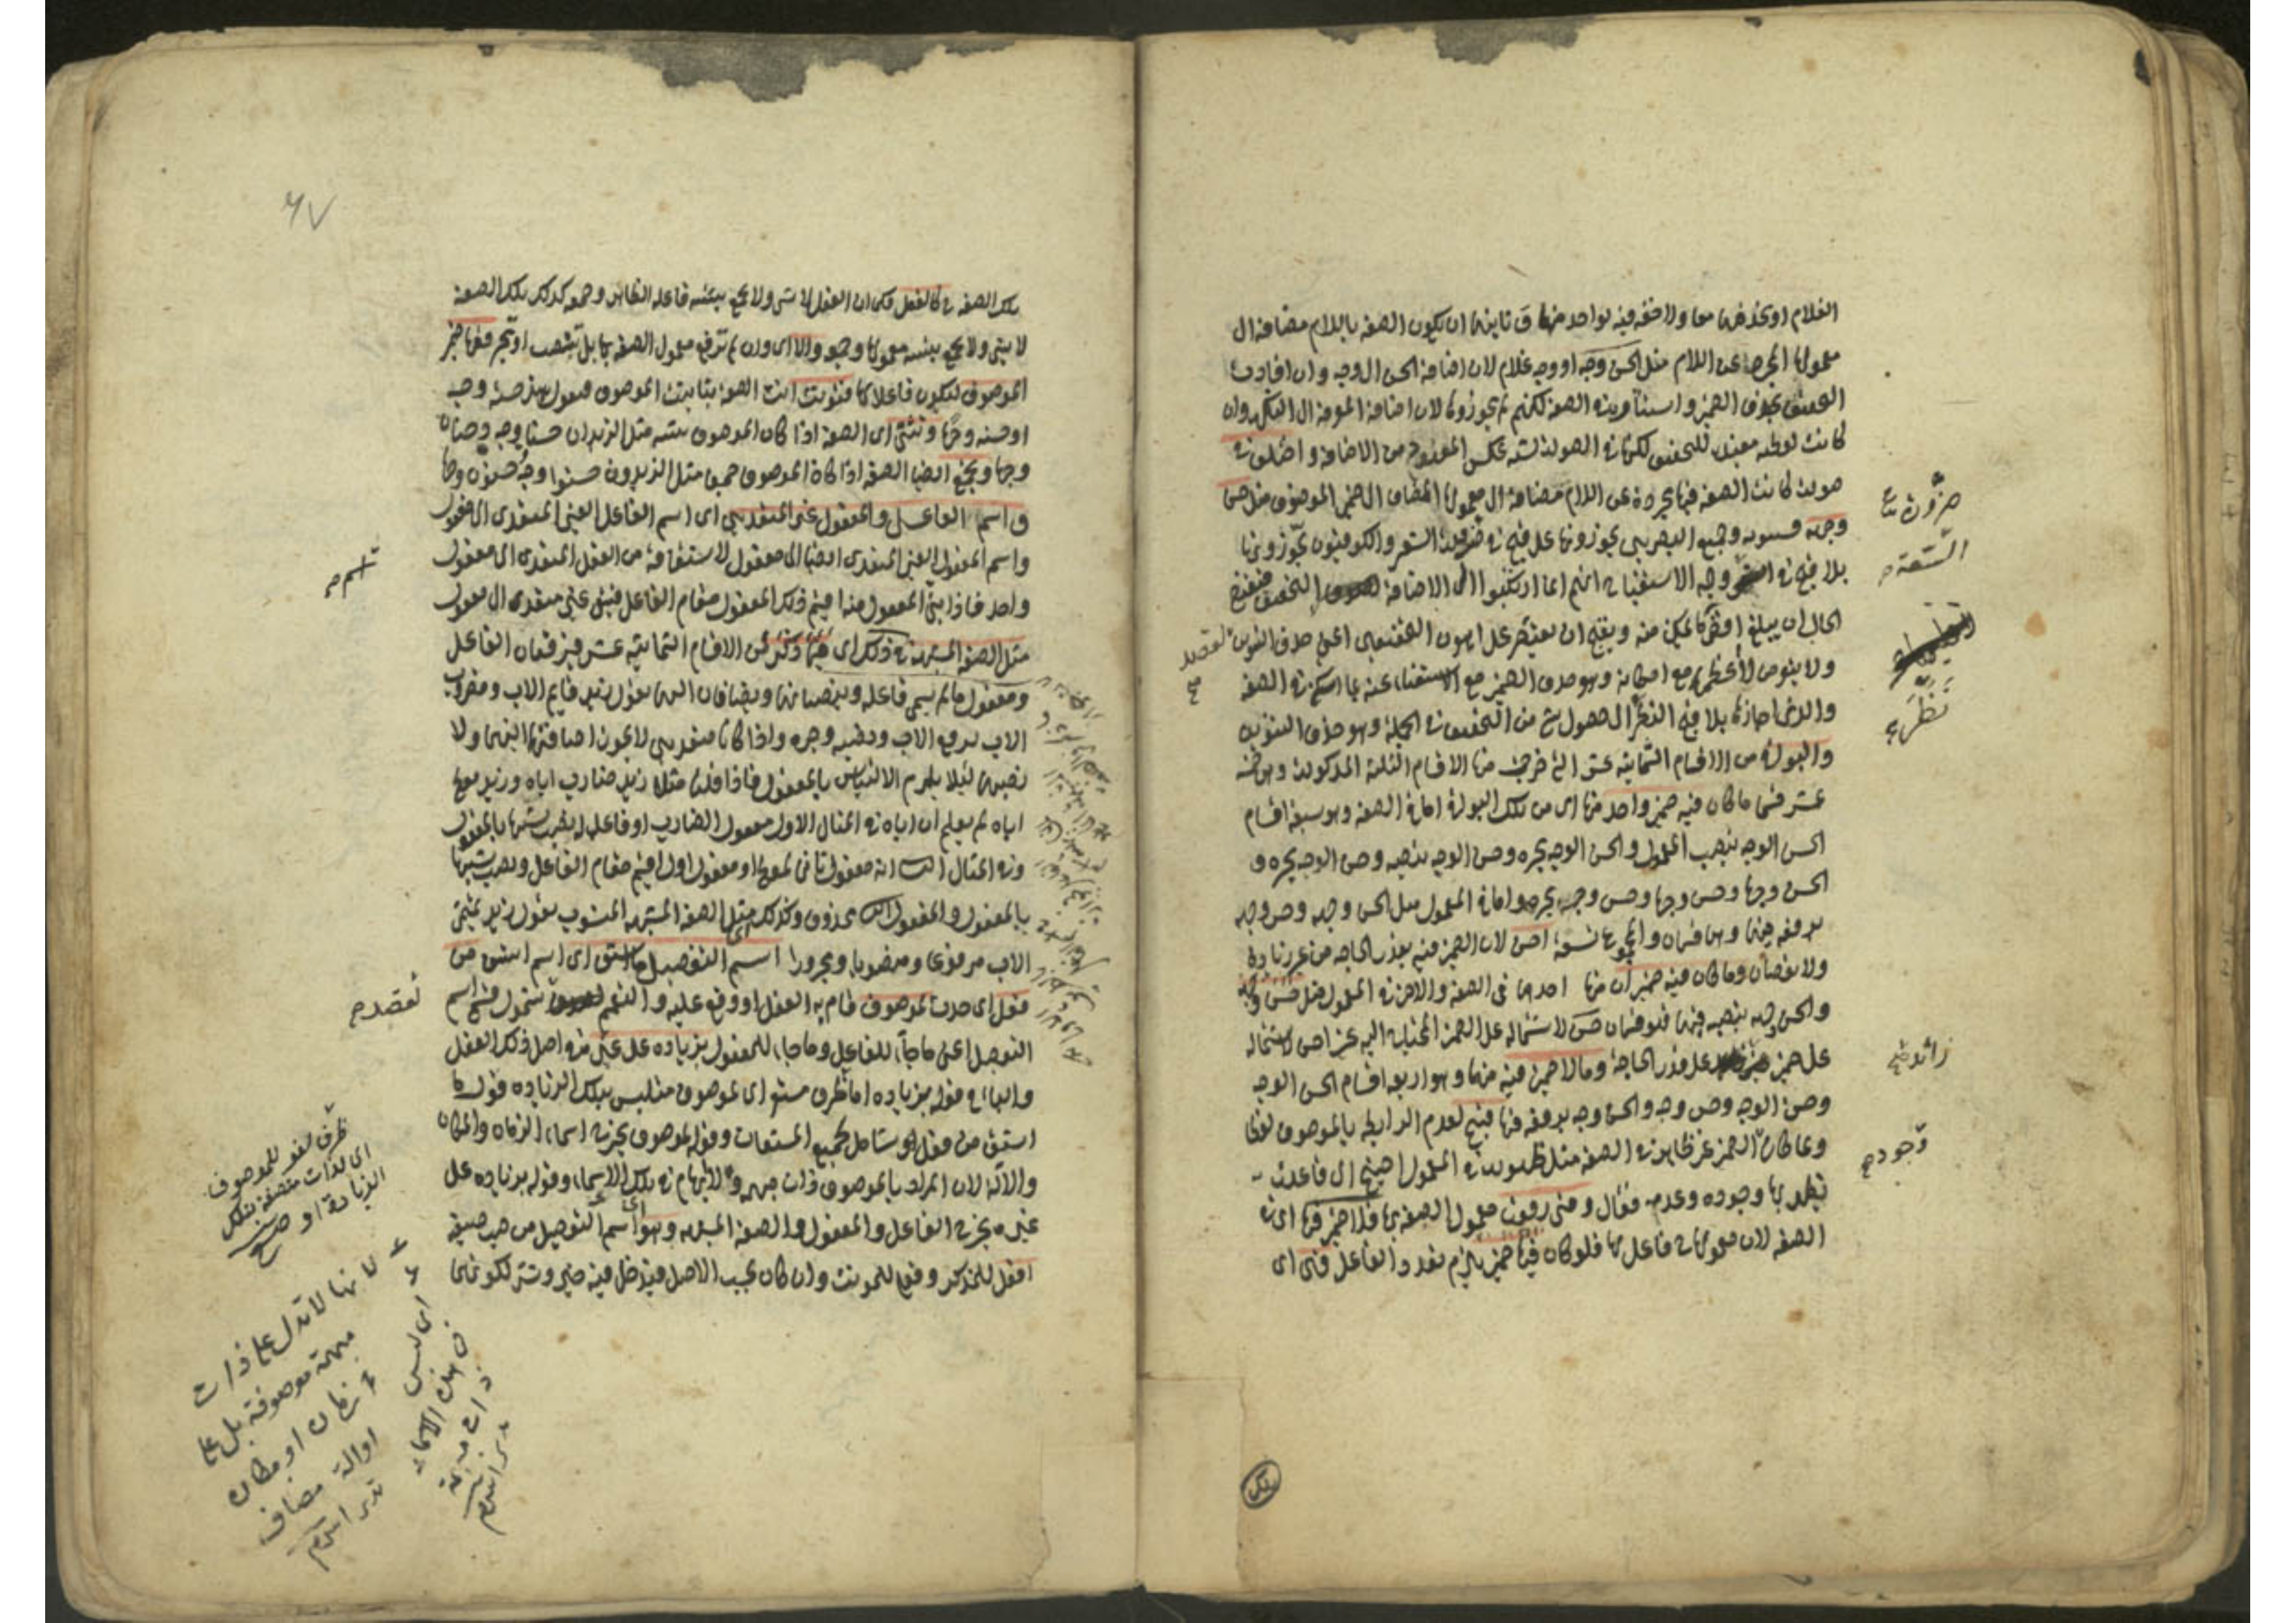 الغلام او بحذفها معا ولا خفة فيه بواحد منها و ثانيتها ان يكون الصفة باللام مضافة الى
معمولها المجرد عن اللام مثل الحسن وجه او وجه غلام لان اضافة الحسن الى وجه وان افادت
التخفيف بحذف الضمير واستتاره في الصفة لكنهم لم يجوزوها لان اضافة المعرفة الى النكرة وان
كانت لفظية مفيدة للتخفيف لكنها في الصورة تشبه عكس المعهود من الاضافة واختلف في
صورة كانت الصفة فيها مجردة عن اللام مضافة الى معمولها المضاف الى ضمير الموصوف مثل حسن
وجهه فسيبويه وجميع البصريين يجوزونها على قبح في ضرورة الشعر والكوفيون يجوزونها
بلا قبح في السعة وجه الاستقباح انهم انما ارتكبوا الاضافة لقصد التخفيف فيقتضي
الحال ان يبلغ اقصى ما يمكن منه ويقبح ان يقتصر على اهون التخفيفين اعني حذف التنوين
ولا يتعرض لاعظمهما مع امكانه وهو حذف الضمير مع الاستغناء عنه بما استكن في الصفة
والذي اجازها بلا قبح نظر الى حصول شيء من التخفيف في الجملة وهو حذف التنوين
والبواقي من الاقسام الثمانية عشر التي خرجت منها الاقسام الثلثة المذكورة وهي خمسة
عشر قسما ما كان فيه ضمير واحد منها اى من تلك البواقي اما في الصفة وهو سبعة اقسام
الحسن الوجه بنصب المعمول والحسن الوجه بجره وحسن الوجه بنصبه وحسن الوجه بجره و
الحسن وجها وحسن وجها وحسن وجه بجره واما في المعمول مثل الحسن وجهه وحسن وجهه
برفعه فيهما وهما قسمان والمجموع تسعة احسن لان الضمير فيه بقدر الحاجة من غير زيادة
ولا نقصان وما كان فيه ضميران منها احدهما في الصفة والاخر في المعمول مثل حسن وجهه
والحسن وجهه بنصبه فيهما فهو قسمان حسن لاشتماله على الضمير المحتاج اليه غير احسن لاشتماله
على ضمير زائد على قدر الحاجة وما لا ضمير فيه منها وهو اربعة اقسام الحسن الوجه
وحسن الوجه وحسن وجه والحسن وجه برفعه فيها قبيح لعدم الرابطة بالموصوف لفظا
ولما كان الضمير غير ظاهر في الصفة مثل ظهوره في المعمول احتيج الى قاعدة
يظهر بها وجوده وعدمه فقال ومتى رفعت معمول الصفة بها فلا ضمير فيها اى في
الصفة لان معمولها فاعل لها فلو كان فيها ضمير يلزم تعدد الفاعل فهي اى
السعة
نظر
زائد
وجوده
لقصد
تلك
٤٧
تلك الصفة كالفعل فكما ان الفعل لا يثنى ولا يجمع بتثنية فاعله الظاهر وجمعه كذلك تلك الصفة
لا يثنى ولا يجمع بتثنية معمولها وجمعه والا اى وان لم ترفع معمول الصفة بها بل تنصب او تجر ففيها ضمير
الموصوف ليكون فاعلا لها فتؤنث انت الصفة بتانيث الموصوف فيقول هند حسنة وجه
او حسنة وجها وتثنى اى الصفة اذا كان الموصوف تثنية مثل الزيدان حسنا وجه وحسنان
وجها وتجمع ايضا الصفة اذا كان الموصوف جمعا مثل الزيدون حسنوا وجه وحسنون وجها
واسما الفاعل والمفعول غير المتعديين اى اسم الفاعل الغير المتعدى الى المفعول
واسم المفعول الغير المتعدى ايضا الى مفعول لاشتقاقه من الفعل المتعدى الى مفعول
واحد فاذا بني المفعول منه اقيم ذلك المفعول مقام الفاعل فبقي غير متعدى الى مفعول
مثل الصفة المشبهة في ذلك اى فيما ذكر من الاقسام الثمانية عشر فيرفعان الفاعل
ومفعول ما لم يسم فاعله وينصبانهما ويضافان اليهما تقول زيد قايم الاب ومضروب
الاب برفع الاب ونصبه وجره واذا كانا متعديين لا يجوز اضافتهما اليهما ولا
نصبهما لئلا يلزم الالتباس بالمفعول فاذا قلنا مثلا زيد ضارب اباه وزيد معطى
اباه لم يعلم ان اباه في المثال الاول مفعول الضارب او فاعل له نصب تشبيها بالمفعول
وفي المثال الثاني انه مفعول ثاني لمعطى او مفعول اول اقيم مقام الفاعل ونصب تشبيها
بالمفعول والمفعول الثاني محذوف وكذلك مثل الصفة المشبهة المنسوب تقول زيد تميمي
الاب مرفوعا ومنصوبا ومجرورا اسم التفضيل ما اشتق اى اسم اشتق من
فعل اى حدث لموصوف قام به الفعل او وقع عليه والتعميم لقصد شمول قسمي اسم
التفضيل اعني ما جاء للفاعل وما جاء للمفعول بزيادة على غيره في اصل ذلك الفعل
والباء في قوله بزيادة اما ظرف مستقر اى لموصوف متلبس بتلك الزيادة فقوله ما
اشتق من فعل هو شامل لجميع المشتقات وقوله لموصوف يخرج اسماء الزمان والمكان
والآلة لان المراد بالموصوف ذات مبهمة ولا ابهام في تلك الاسماء وقوله بزيادة على
غيره يخرج الفاعل والمفعول والصفة المشبهة وهو اى اسم التفضيل من حيث صيغته
افعل للمذكر وفعلى للمونث وان كان بحسب الاصل فيدخل فيه خير وشر لكونهما
اسم
لقصد
ظرف لغو للموصوف
اى لذات متصفة بتلك
الزيادة او
لانها لا تدل على ذات
مبهمة موصوفة بل على
زمان او مكان
او آلة مضاف
اى ليس
في هذه الاسماء
ذات مبهمة